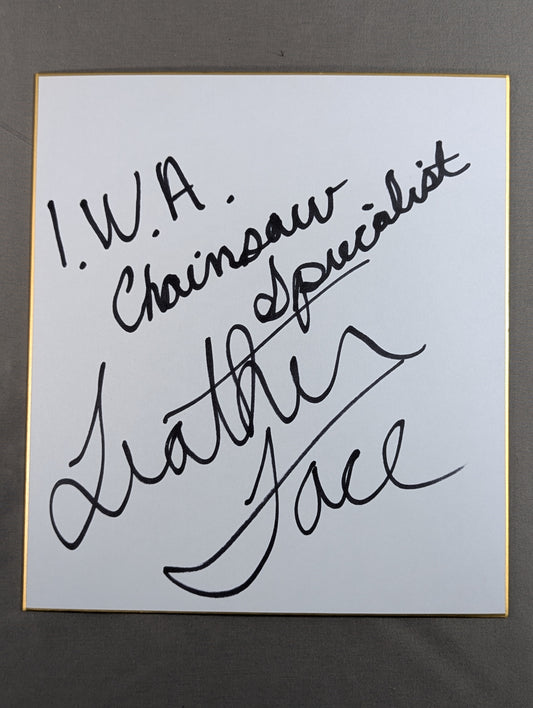 I.W.A.
Chainsaw
Specialist
Leather
Face